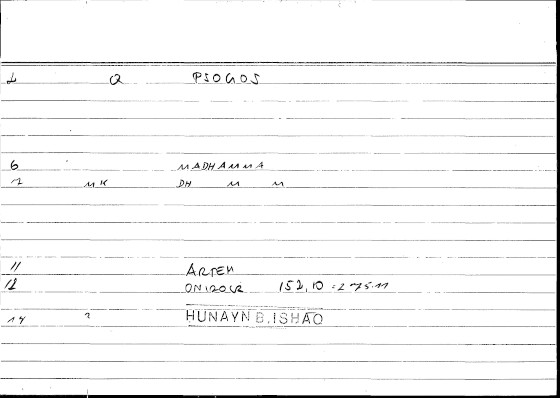 1 Q PSOGOS
6 MADHAMMA
7 MK DH M M
11 ARTEM
12 ONIROCR 152,10 = 275.11
14 2 HUNAYN B. ISHAQ